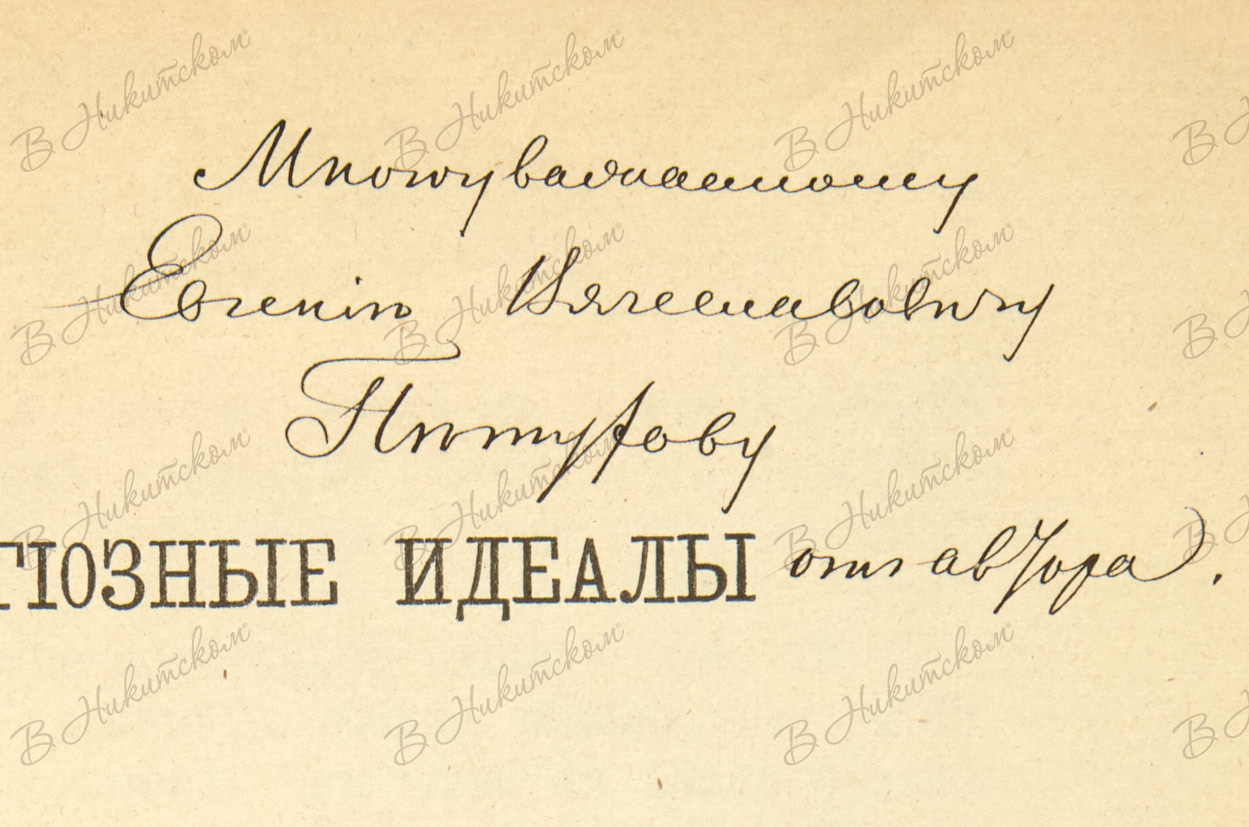 В Никитском
Многоуважаемому
Евгенію Вячеславовичу
Пѣтухову
ГІОЗНЫЕ ИДЕАЛЫ отъ автора.